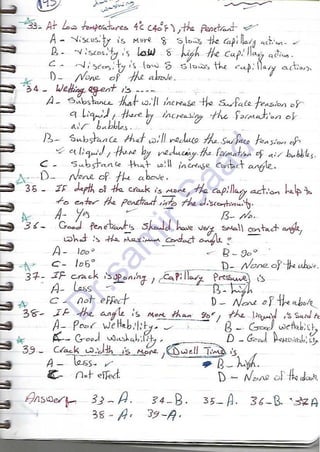 33- At Low temperatures 4°C (40°F), the penetrant
A- Viscosity is more & slows the capillary action.
B- Viscosity is low & high the capillary action.
C- Viscosity is low & slows the capillary action.
D- None of the above.
34- Wetting agent is ----
A- Substance that will increase the surface tension of
a liquid, there by increasing the formation of
air bubbles.
B- Substance that will reduce the surface tension of
a liquid, there by reducing the formation of air bubbles.
C- Substance that will increase contact angle.
D- None of the above.
35- IF depth of the crack is more, the capillary action help to
to enter the penetrant into the discontinuity.
A- Yes B- No.
36- Good penetrants should have very small contact angle,
what is the maximum contact angle?
A- 100° B- 90°
C- 105° D- None of the above.
37- IF crack is opening, Capillary Pressure is
A- Less B- high
C- not effect D- None of the above
38- IF the angle is more than 90°, the liquid is said to
A- Poor Wettability. B- Good wettability
C- Good washability. D- Good
39- Crack width is more, Dwell Time is
A- less. B- high.
C- not effect D- None of the above
Answer 33-A. 34-B. 35-A. 36-B. 37A
38-A. 39-A.